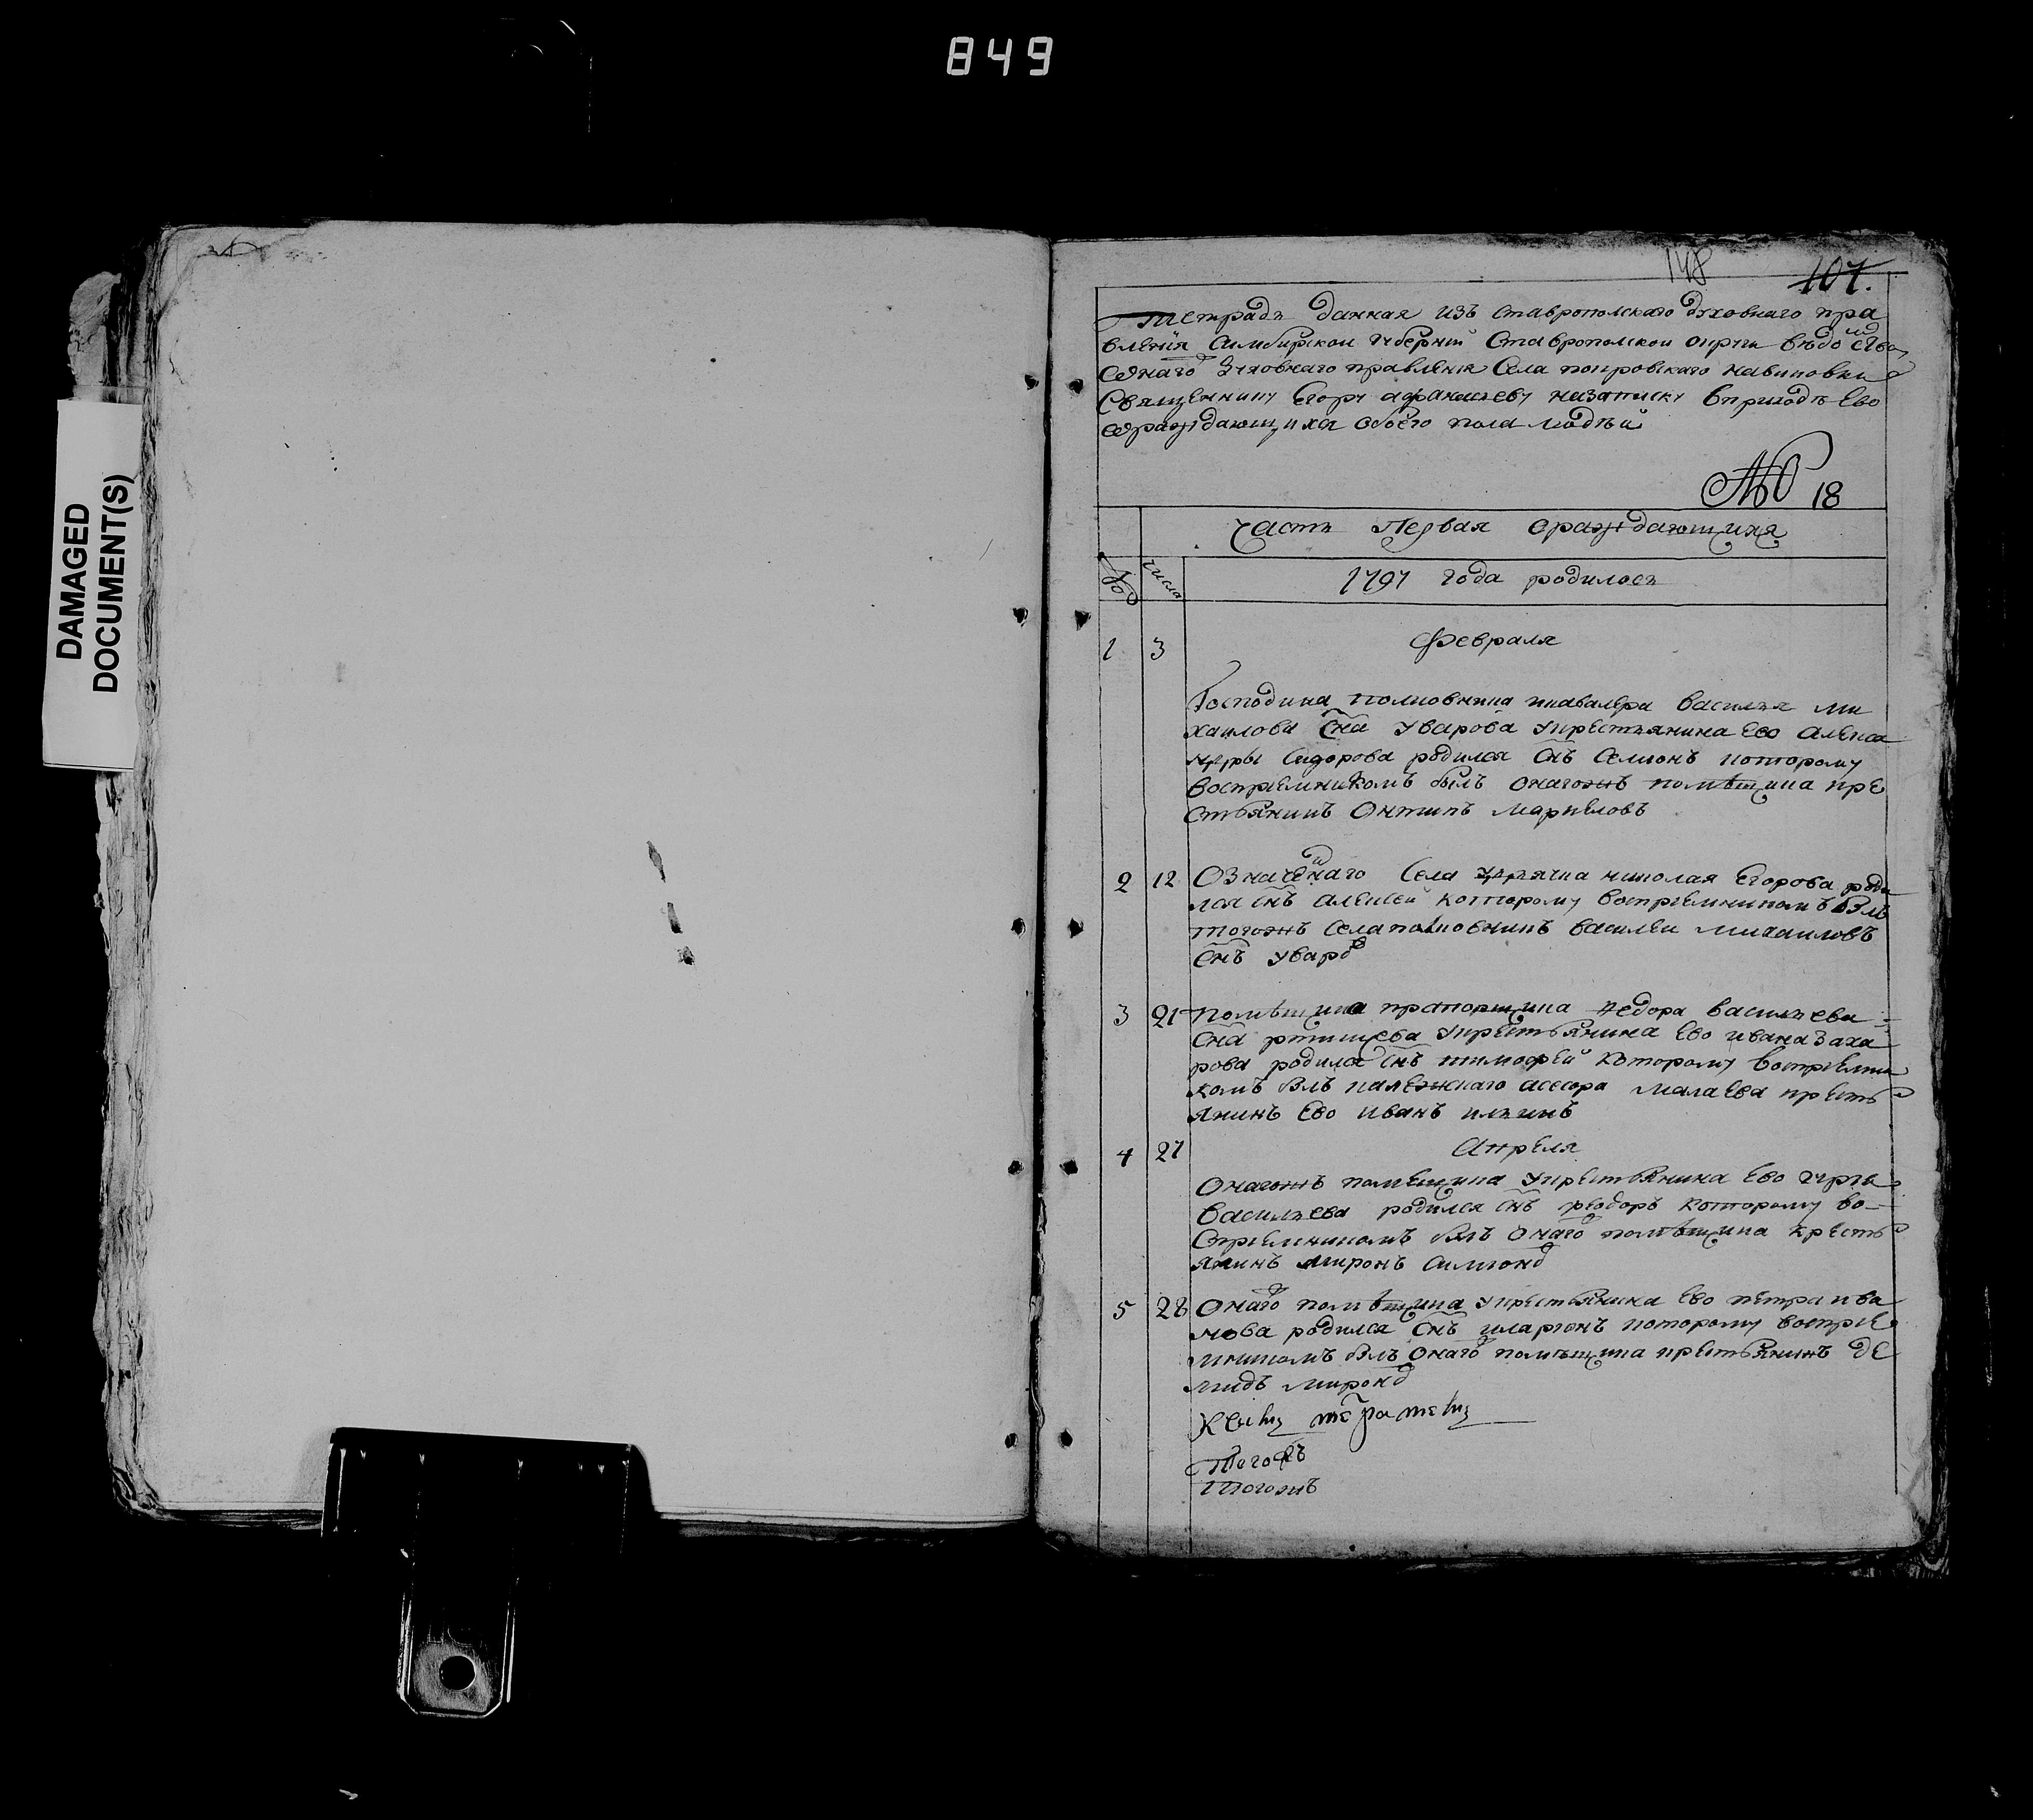 849
DAMAGED
DOCUMENT(S)
148 107.
Тетрадь данная изъ ставропольскаго духовнаго пра
вленія симбирской губерніи Ставропольской округи вѣдомства
онаго духовнаго правленія Села покровскаго
Священнику Егору афанасьеву назаписку вприходѣ Ево
ораждающихся обоего пола людѣй
№ 18
Часть Первая ораждающихся
№ числа 1797 года родилось
1 3 Февраля
Господина полковника икавалера василья ми
хаилова сна Уварова укрестьянина Ево алекса
ндры Сидорова родился снъ Семионъ которому
воспріемникомъ былъ онагожъ помѣщика кре
стьянинъ Онтипъ маркеловъ
2 12 Означеннаго Села дьячка николая Егорова роди
лся снъ алексей которому воспріемникомъ былъ
тогожъ села полковникъ василеи михаиловъ
снъ уваровъ
3 21 Помѣщика прапорщика федора васильева
сна ртищева укрестьянина Ево ивана заха
рова родился снъ тимофей которому воспріемни
комъ былъ калежскаго асесора малаева кресть
янинъ Ево иванъ ильинъ
4 27 Апреля
Онагожъ помещика укрестьянина Ево
васильева родился снъ феодоръ которому во
спріемникомъ былъ онаго помѣщика кресть
янинъ миронъ симионов
5 28 Онагож помѣщика укрестьянина Ево петра ива
нова родился снъ иларионъ которому воспріе
мникомъ былъ онаго помѣщика крестьянинъ де
мидъ миронов
Ксей тетратей
Тогожъ
Тогожъ